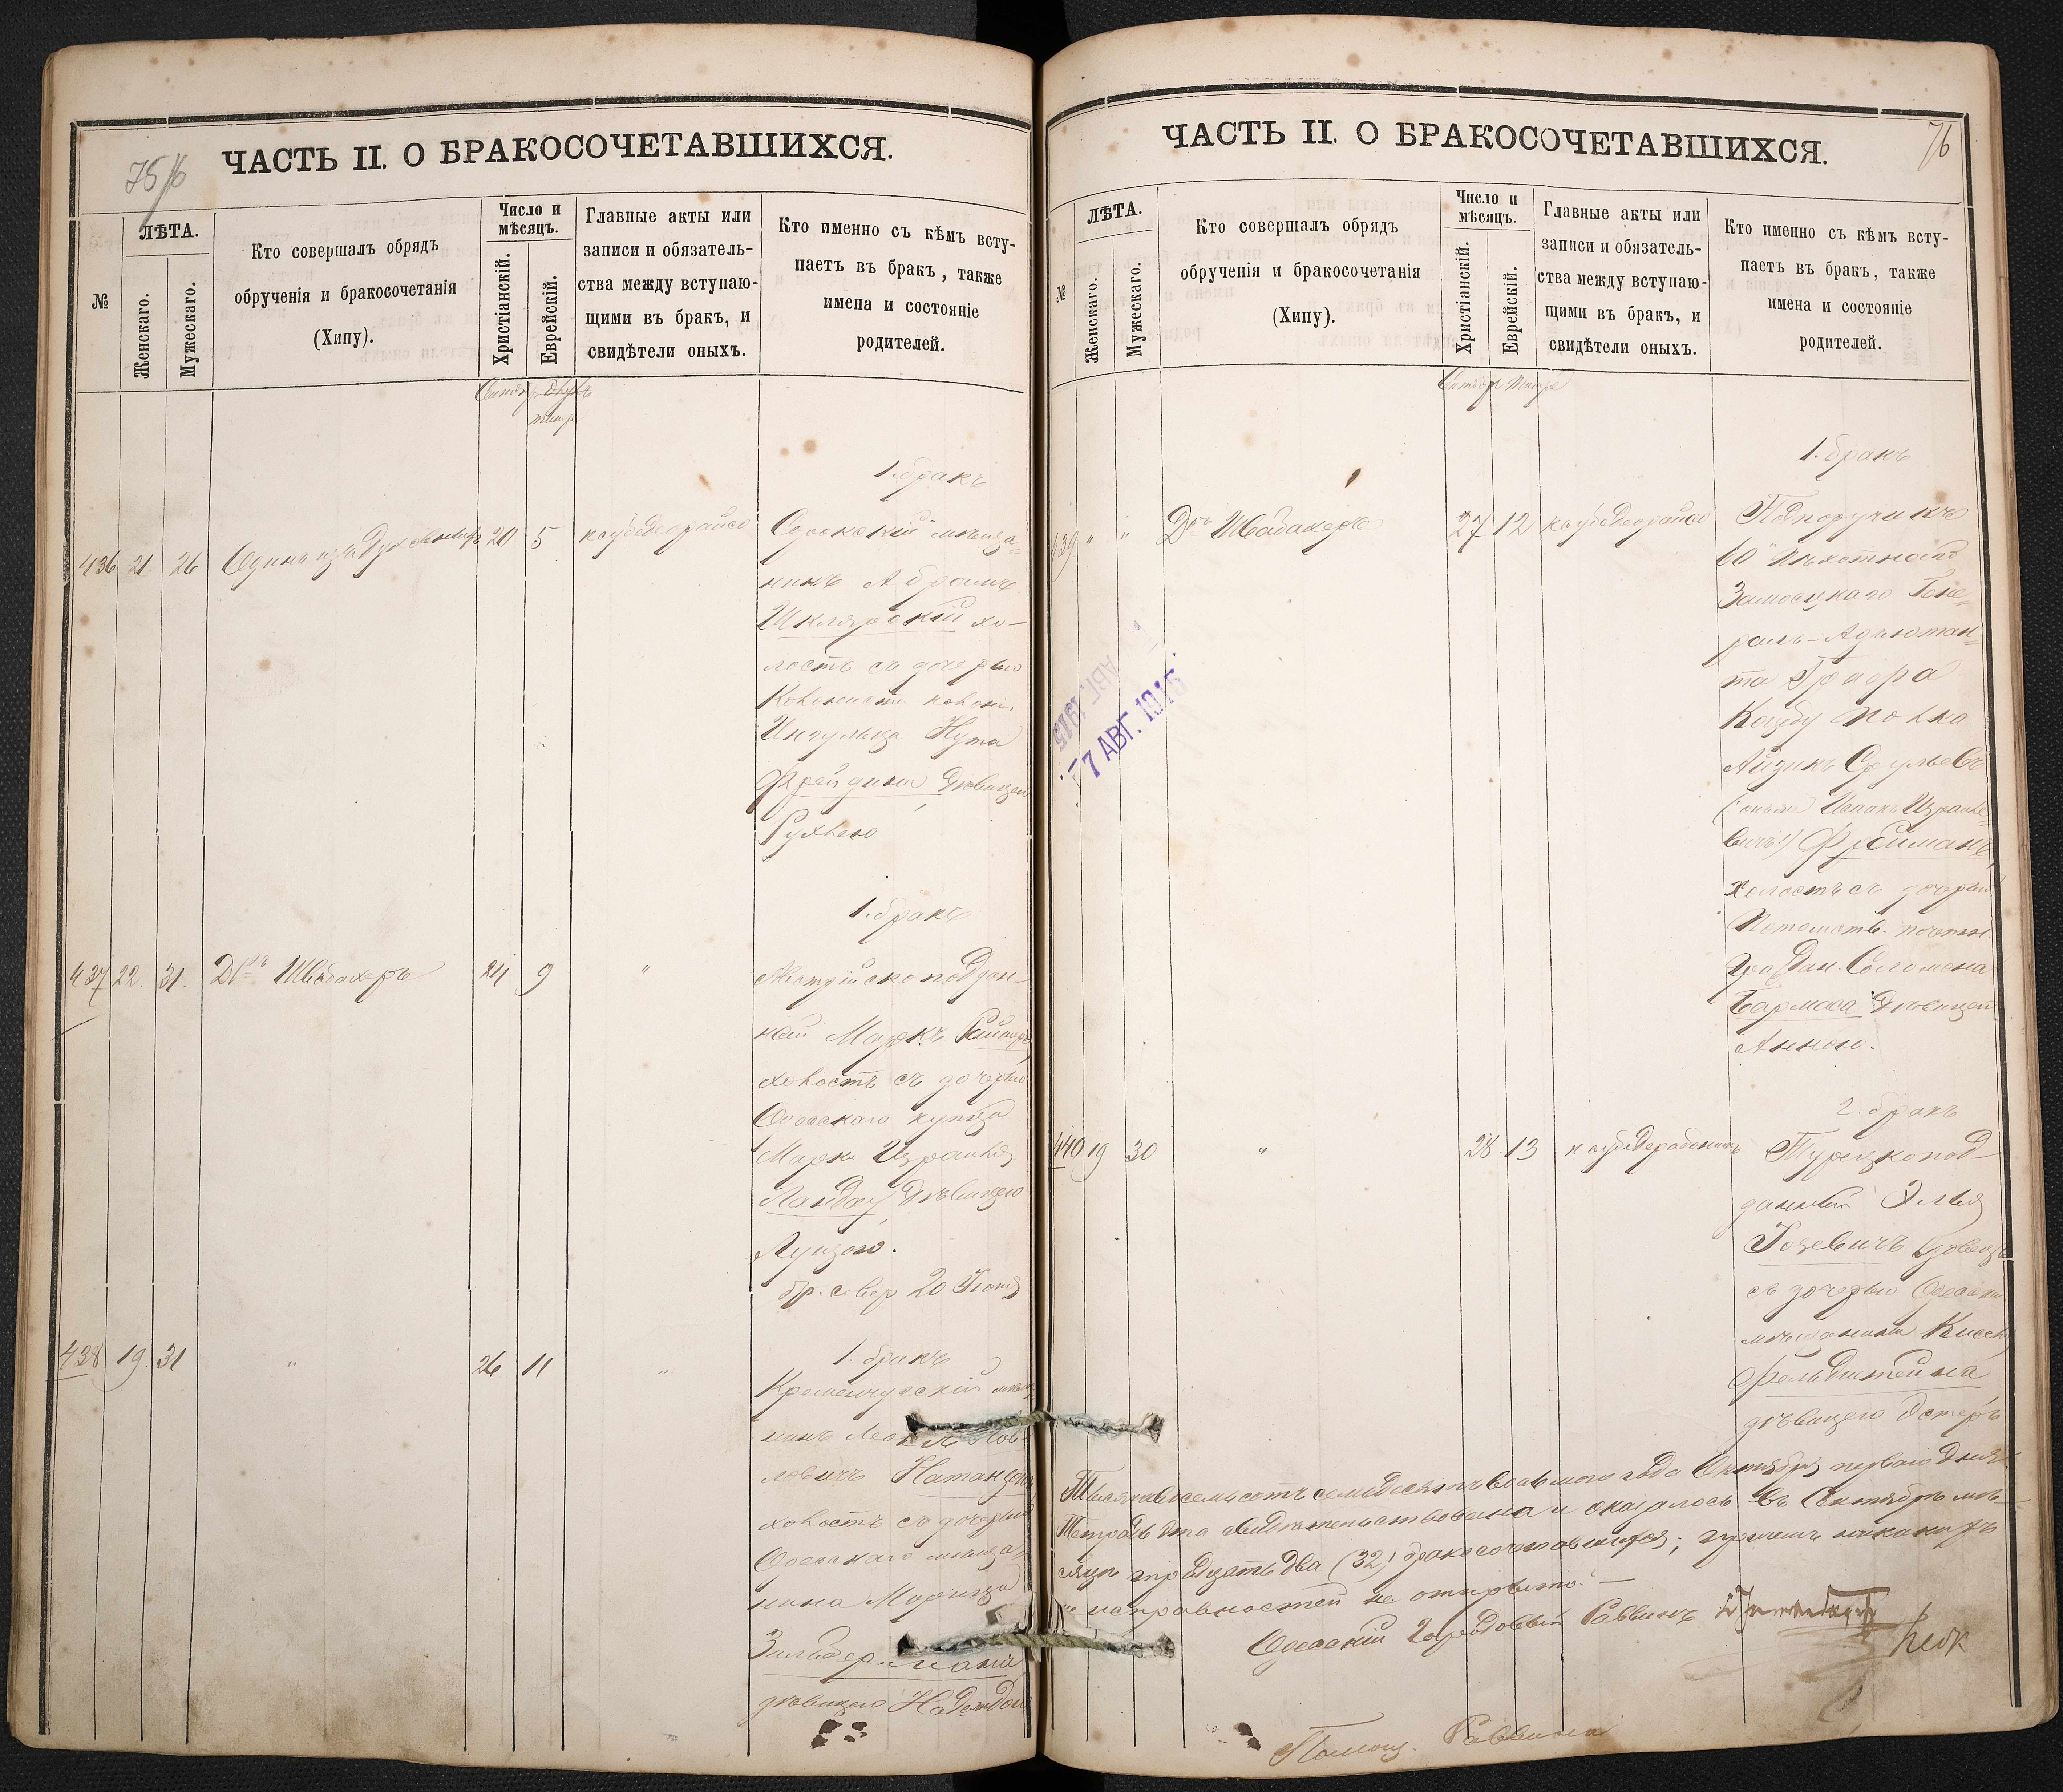 75/16
ЧАСТЬ II. О БРАКОСОЧЕТАВШИХСЯ.
№
ЛѢТА.
Женскаго.
Мужескаго.
Кто совершалъ обрядъ
обрученія и бракосочетанія
(Хипу).
Число и
мѣсяцъ.
Христіанскій.
Еврейскій.
Главные акты или
записи и обязатель-
ства между вступаю-
щими въ бракъ, и
свидѣтели оныхъ.
Кто именно съ кѣмъ всту-
паетъ въ бракъ, также
имена и состояніе
родителей.
436 21. 26 Одинъ изъ Духовныхъ 20 5
1. бракъ
Одесскій мѣща-
нинъ Абрамъ
Шклярскій хо-
лостъ съ дочерью
Колониста колоніи
Ингульца Нута
Фрейдина дѣвицею
Рухлею
437 22. 31. Д-ръ Швабахеръ 24 9 "
1. бракъ
Австрійскоподдан-
ный Маркъ
холостъ съ дочерью
Одесскаго купца
Марка Израиля
Ландау дѣвицею
Луизою.
бр. совер 20 Іюня
438 19. 31 " 26 11 "
1. бракъ
Кременчугскій
нинъ
ловичъ Натанзонъ
холостъ съ дочерью
Одесскаго мѣща-
нина Морица
Зильбермана
дѣвицею Надеждою
ЧАСТЬ II. О БРАКОСОЧЕТАВШИХСЯ.
76
№
ЛѢТА.
Женскаго.
Мужескаго.
Кто совершалъ обрядъ
обрученія и бракосочетанія
(Хипу).
Число и
мѣсяцъ.
Христіанскій.
Еврейскій.
Главные акты или
записи и обязатель-
ства между вступаю-
щими въ бракъ, и
свидѣтели оныхъ.
Кто именно съ кѣмъ всту-
паетъ въ бракъ, также
имена и состояніе
родителей.
439 " " Д-ръ Швабахеръ 27 12
1. бракъ
Подпоручикъ
60 пѣхотнаго
Замосцкаго Гене-
ралъ-Адъютан-
та Графа
Коцебу полка
Айзикъ Сруль
(: онъ же Исаакъ Израиле-
вичъ :) Фрейманъ,
холостъ съ дочерью
Потомств. почетн.
Граждан. Соломона
Бармаса дѣвицею
Анною.
7 АВГ. 1915
440 19 30 " 28 13
2. бракъ
Турецкопод-
данный Элья
Іозевичъ вдовецъ
съ дочерью Одесск
мѣщанина
Фельдштейна
дѣвицею Эстеръ
Тысяча восемьсотъ семьдесятъ восьмого года Октября перваго дня
Тетрадь эта свидѣтельствована и оказалось въ Сентябрѣ мѣ-
сяцѣ тридцать два (32) бракосочетавшихся; причемъ никакихъ
неисправностей не открыто.—
Одесскій Городовый Раввинъ
Помощ. Раввина